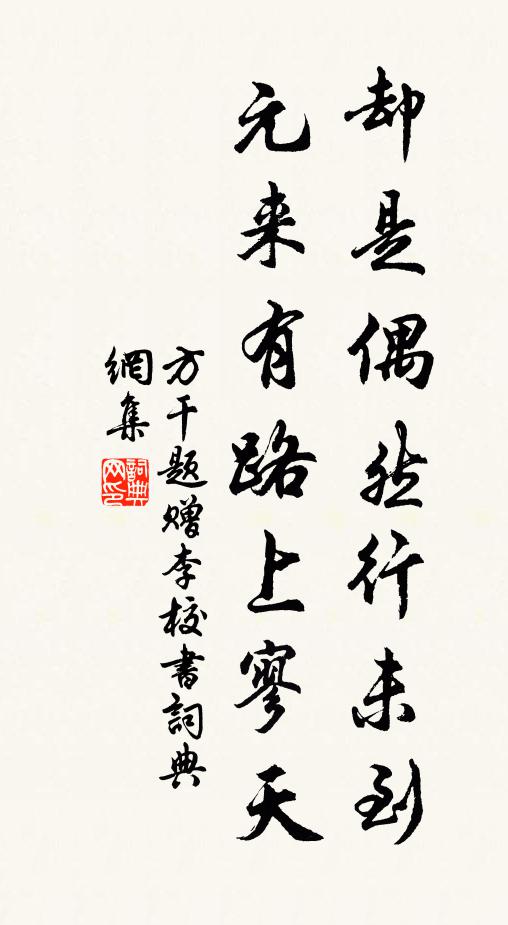 却是偶然行未到
元来有路上寥天
方干题赠李校書詞典
網集
詞典网印